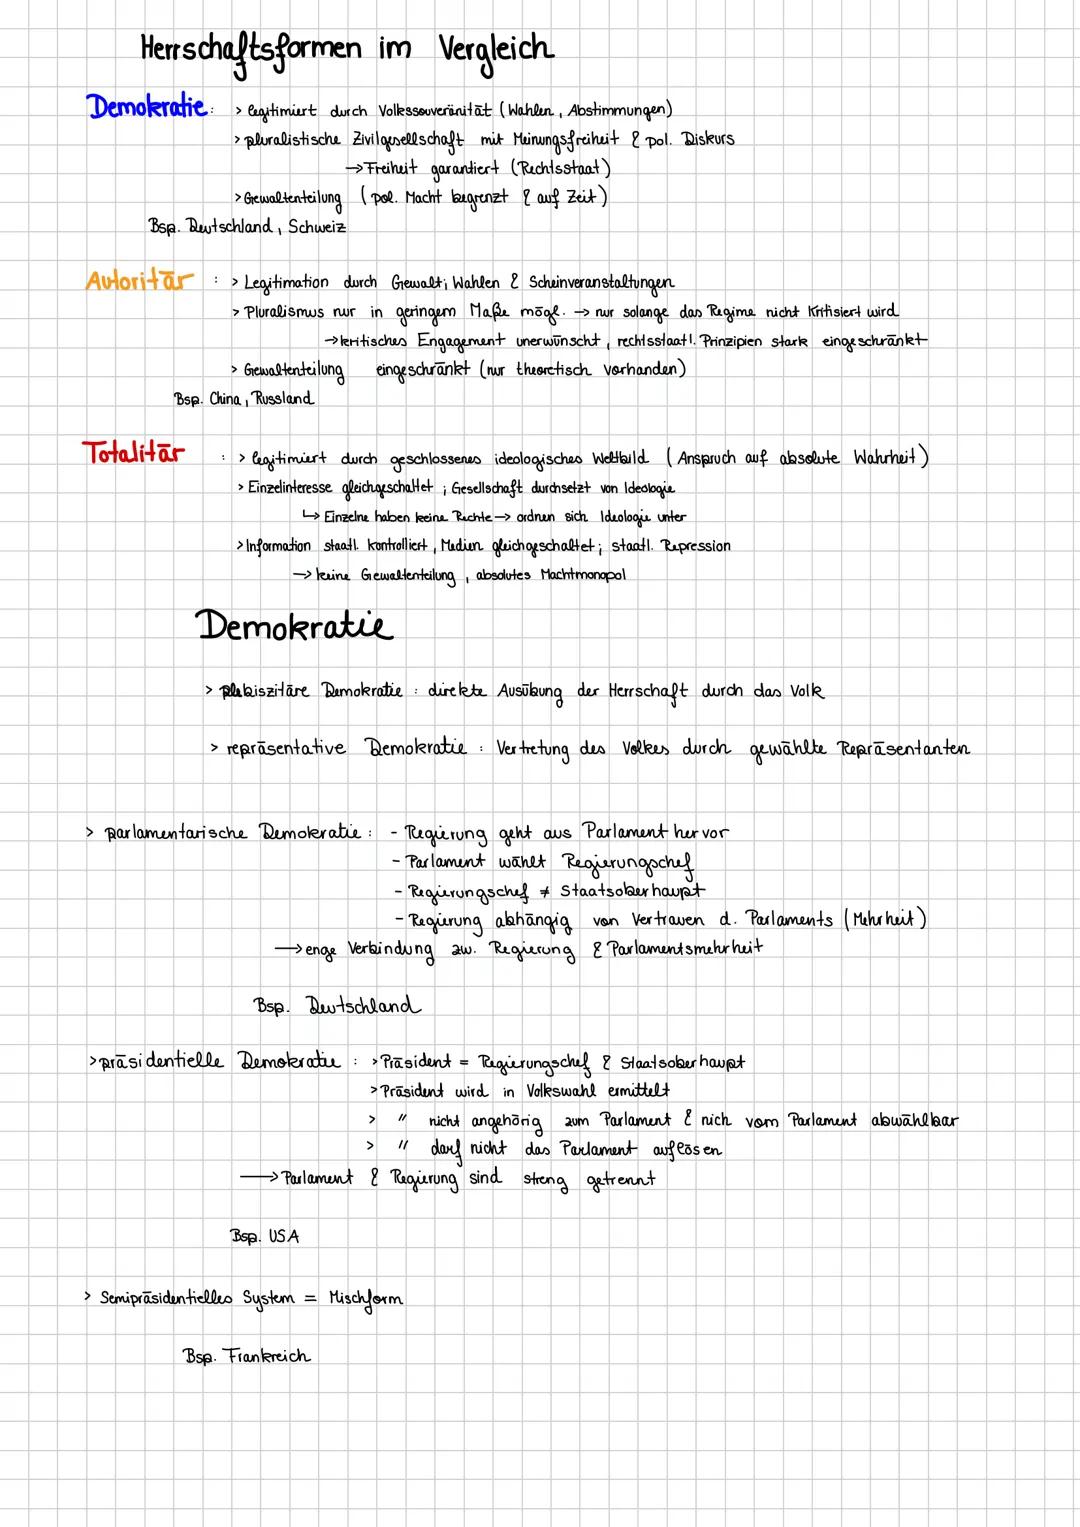 Herrschaftsformen im Vergleich
Demokratie: > legitimiert durch Volkssouveränität (Wahlen, Abstimmungen)
> pluralistische Zivilgesellschaft mit Meinungsfreiheit & pol. Diskurs
→ Freiheit garantiert (Rechtsstaat)
> Gewaltenteilung (pol. Macht begrenzt & auf Zeit)
Bsp. Deutschland, Schweiz
Autoritär : > Legitimation durch Gewalt; Wahlen & Scheinveranstaltungen
> Pluralismus nur in geringem Maße mögl. → nur solange das Regime nicht kritisiert wird
→ kritisches Engagement unerwünscht, rechtsstaatl. Prinzipien stark eingeschränkt
> Gewaltenteilung eingeschränkt (nur theoretisch vorhanden)
Bsp. China, Russland
Totalitär : > legitimiert durch geschlossenes ideologisches Weltbild (Anspruch auf absolute Wahrheit)
> Einzelinteresse gleichgeschaltet ; Gesellschaft durchsetzt von Ideologie
↳ Einzelne haben keine Rechte → ordnen sich Ideologie unter
> Information staatl. kontrolliert, Medien gleichgeschaltet; staatl. Repression
→ keine Gewaltenteilung, absolutes Machtmonopol
Demokratie
> plebiszitäre Demokratie : direkte Ausübung der Herrschaft durch das Volk
> repräsentative Demokratie : Vertretung des Volkes durch gewählte Repräsentanten
> parlamentarische Demokratie : - Regierung geht aus Parlament hervor
- Parlament wählt Regierungschef
- Regierungschef ≠ Staatsoberhaupt
- Regierung abhängig von Vertrauen d. Parlaments (Mehrheit)
→ enge Verbindung zw. Regierung & Parlamentsmehrheit
Bsp. Deutschland
> präsidentielle Demokratie : > Präsident = Regierungschef & Staatsoberhaupt
> Präsident wird in Volkswahl ermittelt
> " nicht angehörig zum Parlament & nich vom Parlament abwählbar
> " darf nicht das Parlament auflösen
→ Parlament & Regierung sind streng getrennt
Bsp. USA
> Semipräsidentielles System = Mischform
Bsp. Frankreich